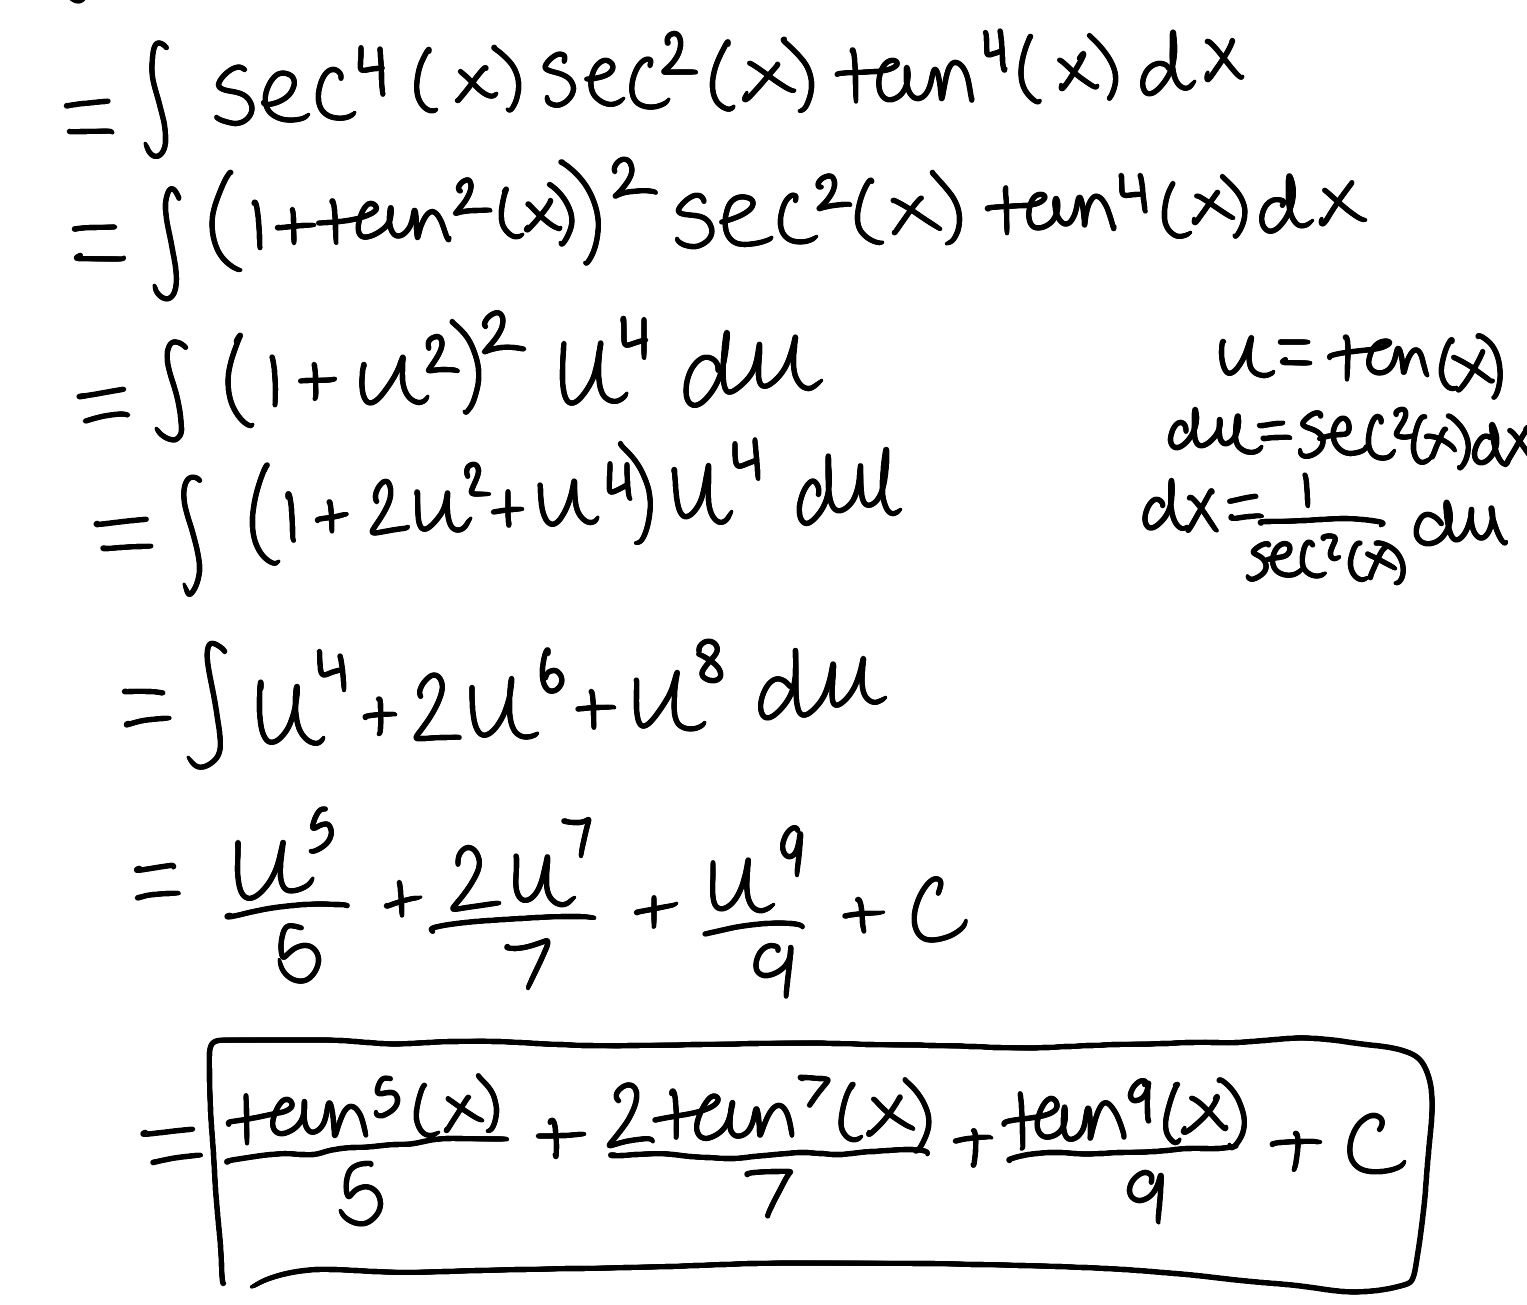 = ∫ sec⁴(x) sec²(x) tan⁴(x) dx
= ∫ (1+tan²(x))² sec²(x) tan⁴(x) dx
= ∫ (1+u²)² u⁴ du
u = tan(x)
du = sec²(x) dx
= ∫ (1+2u²+u⁴) u⁴ du
dx = 1/sec²(x) du
= ∫ u⁴ + 2u⁶ + u⁸ du
= u⁵/5 + 2u⁷/7 + u⁹/9 + C
= tan⁵(x)/5 + 2tan⁷(x)/7 + tan⁹(x)/9 + C